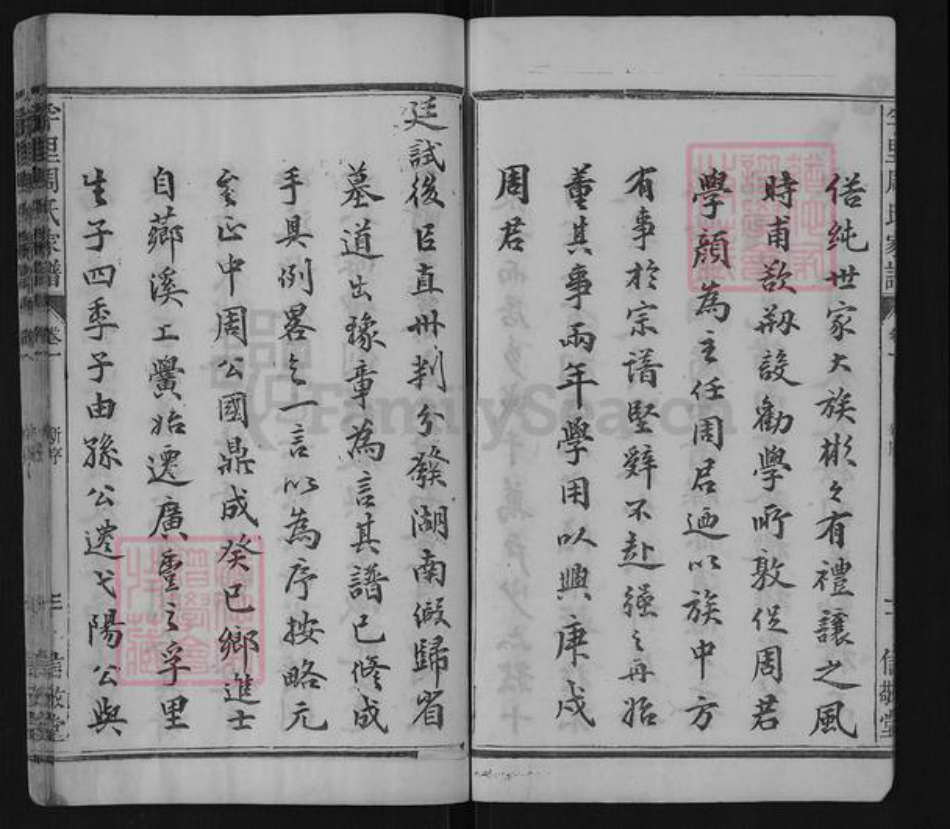 偆純世家大族彬々有禮讓之風
時甫歆剏設勸學所敦促周君
學顔為主任周君迺以族中方
有事於宗譜堅辭不赴強之再始
董其事兩年學用以興庚戌
周君
廷試後臣直州判分發湖南假歸省
墓道出豫章為言其譜已修成
手具例畧乞一言以為序按略元
至正中周公國鼎成癸巳鄉進士
自薌溪工黌始遷廣豐之孚里
生子四季子由孫公遷弋陽公與
孚里周氏家譜
卷一
新序
信敬堂
FamilySearch